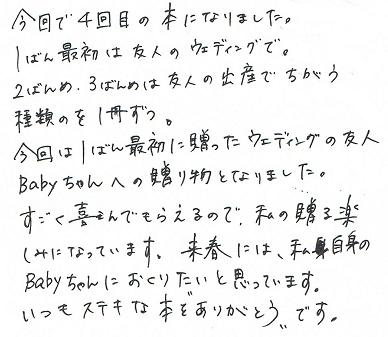 今回で4回目の本になりました。
1ばん最初は友人のウェディングで。
2ばんめ、3ばんめは友人の出産でちがう
種類のを1冊ずつ。
今回は1ばん最初に贈ったウェディングの友人
Babyちゃんへの贈り物となりました。
すごく喜んでもらえるので、私の贈る楽
しみになっています。来春には、私自身の
Babyちゃんにおくりたいと思っています。
いつもステキな本を"ありがとう"です。